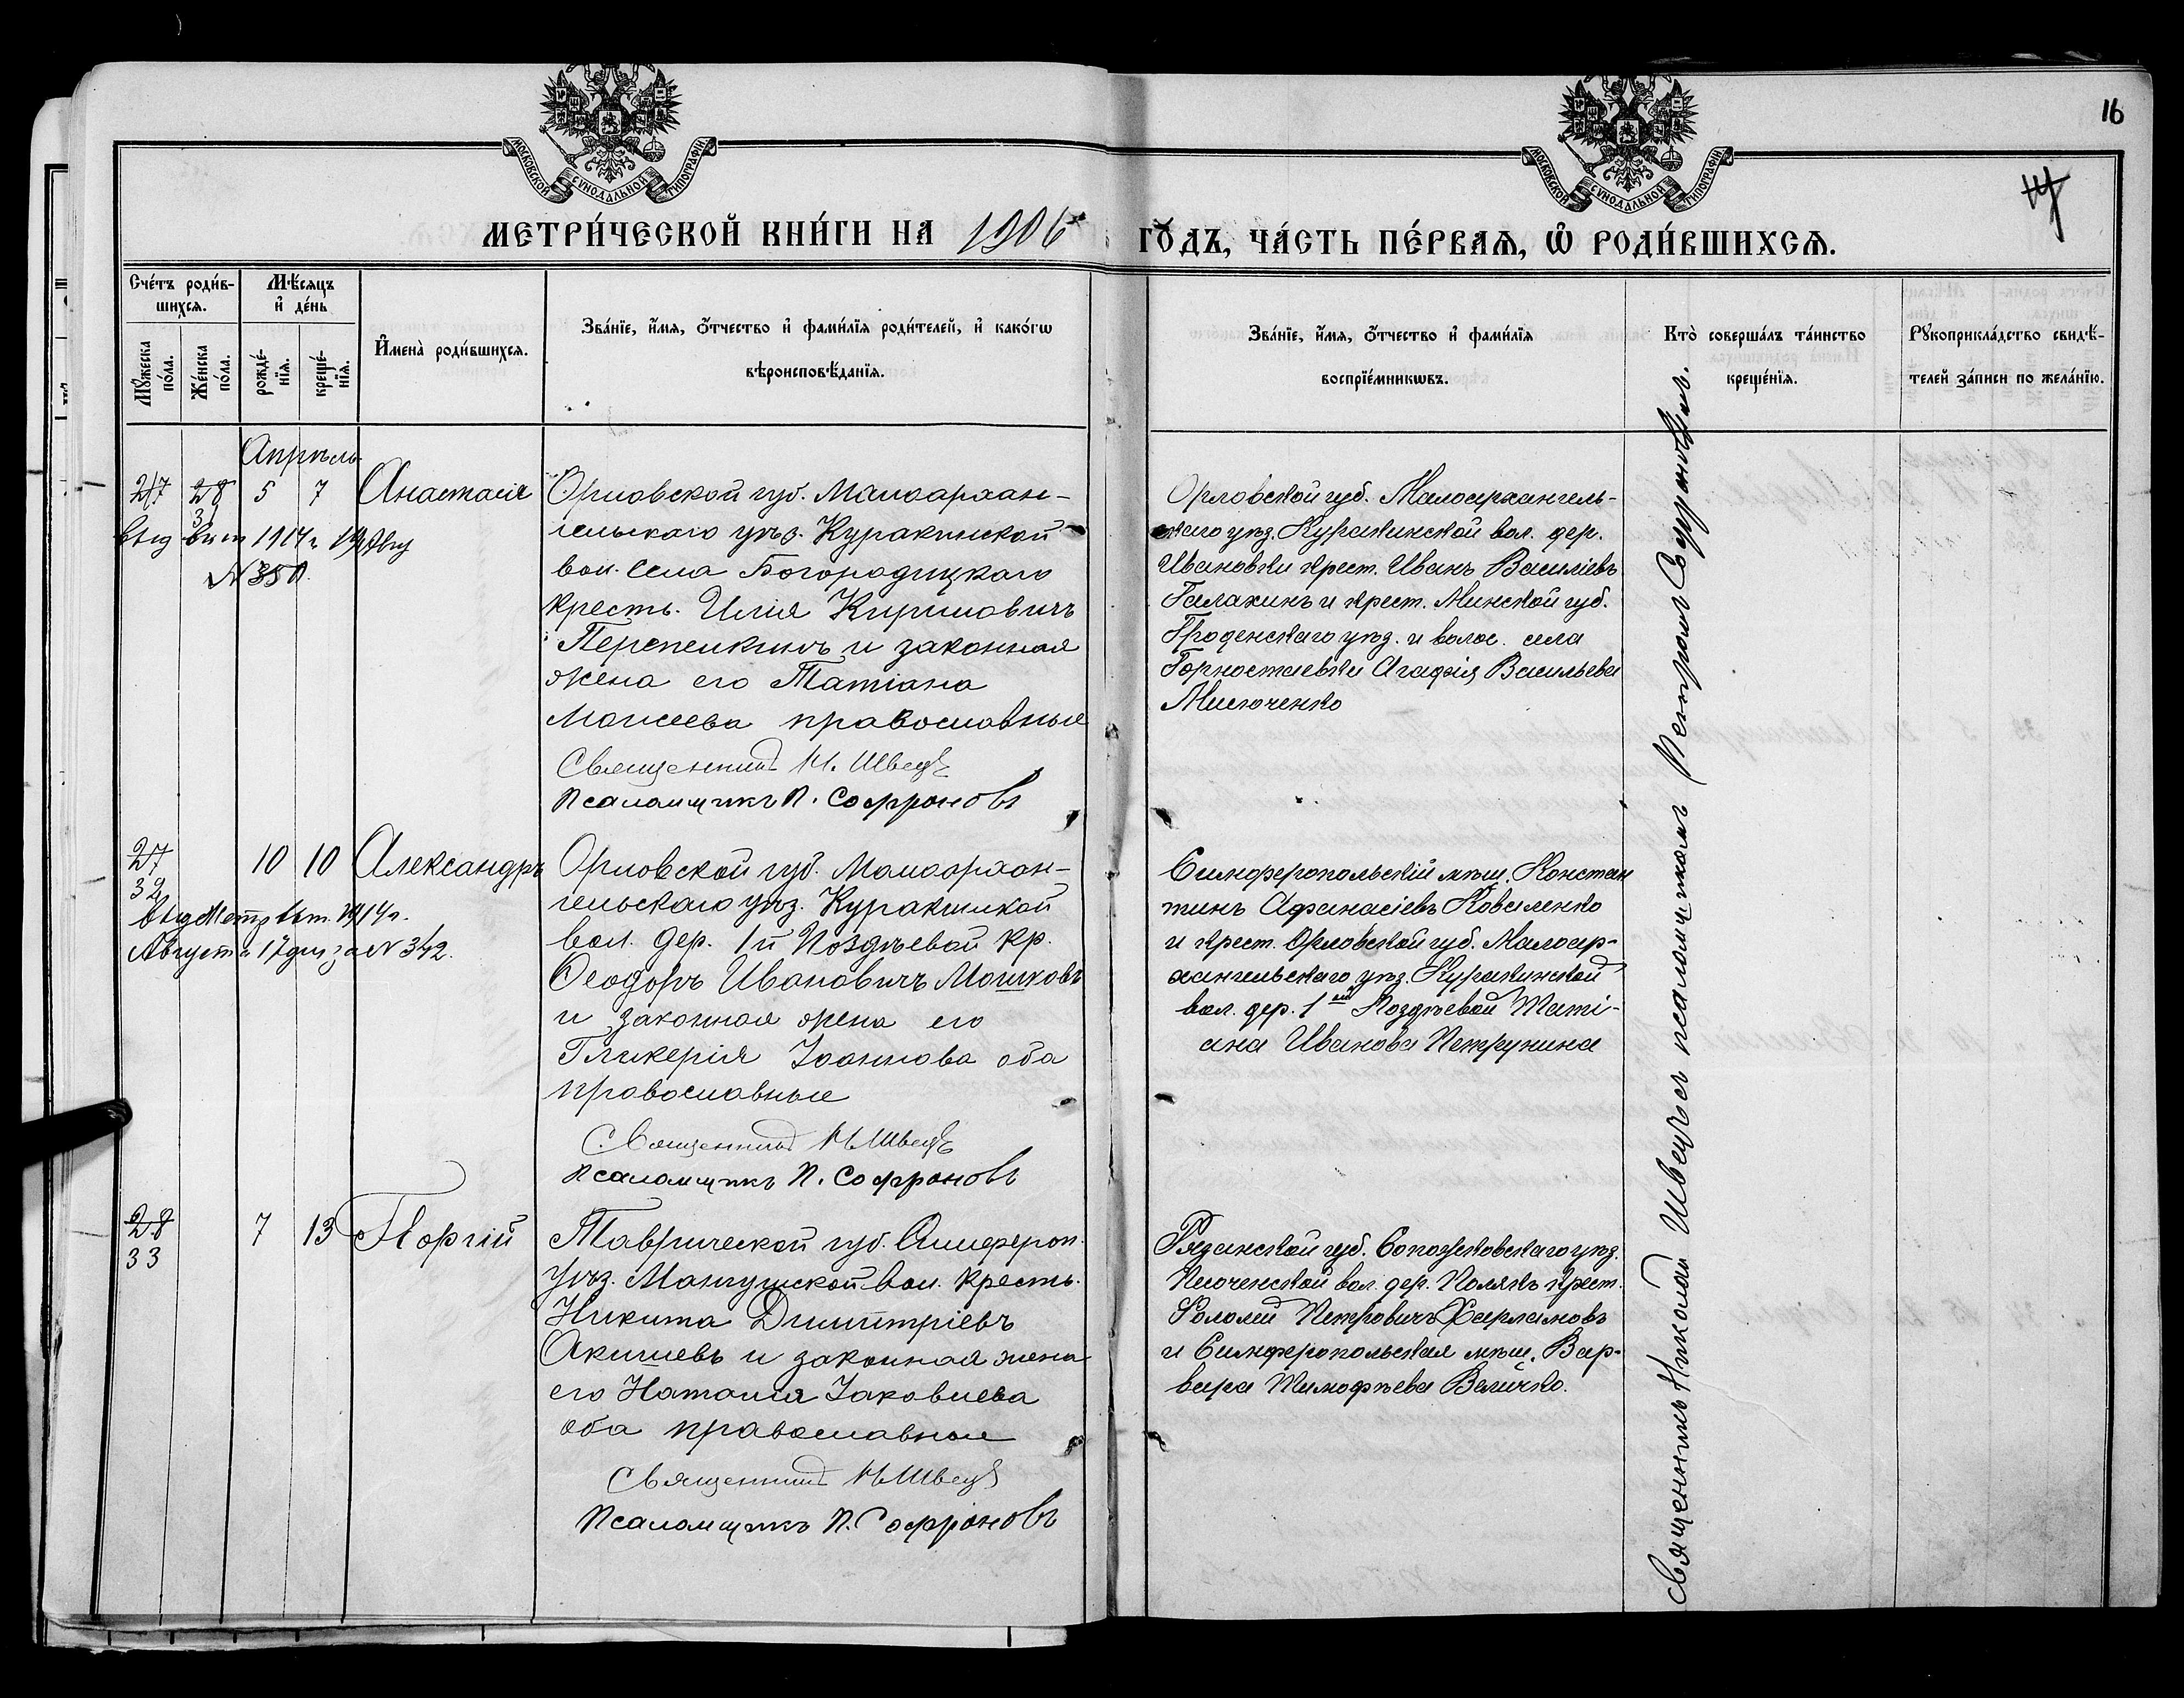 16
МОСКОВСКОЙ СѴНОДАЛЬНОЙ ТИПОГРАФІИ
МОСКОВСКОЙ СѴНОДАЛЬНОЙ ТИПОГРАФІИ
МЕТРИ́ЧЕСКОЙ КНИ́ГИ НА 1906 ГО́ДЪ, ЧА́СТЬ ПЕ́РВАѦ, Ѡ҆ РОДИ́ВШИХСѦ.
Сче́тъ роди́в-
шихсѧ.
Мꙋ́жеска по́ла.
Же́нска по́ла.
Мѣ́сѧцъ и҆ де́нь
рожде́-
нїѧ.
креще́-
нїѧ.
И҆мена̀ роди́вшихсѧ.
Зва́нїе, и҆́мѧ, ѻ҆́тчество и҆ фами́лїѧ роди́телей, и҆ како́гѡ
вѣроисповѣ́данїѧ.
Зва́нїе, и҆́мѧ, ѻ҆́тчество и҆ фами́лїѧ
воспрїе́мникѡвъ.
Кто̀ соверша́лъ та́инство
креще́нїѧ.
Рꙋкоприкла́дство свидѣ́-
телей за́писи по жела́нїю.
Апрѣль
27 28 5 7 Анастасія
31
1914 г.
№ 350.
Орловской губ. Малоархан-
гельскаго уѣз. Куракинской
вол. села Богородицкаго
кресть. Илія Кириловичъ
Перепелкинъ и законная
жена его Татіана
Моисеева православные
Священникъ Н. Швецъ
Псаломщикъ П. Софроновъ
Орловской губ. Малоархангель-
скаго уѣз. Куракинской вол. дер.
Ивановки крест. Иванъ Василіевъ
Галахинъ и крест. Минской губ.
уѣз. и волос. села
Горностаевки Агафія Васильева
27 10 10 Александръ
32
выд. Метр. вып. 1914 г.
Августа 17 дня за № 342.
Орловской губ. Малоархан-
гельскаго уѣз. Куракинской
вол. дер. 1й Поздѣевой кр.
Ѳеодоръ Ивановичъ Мошковъ
и законная жена его
Гликерія Іоаннова оба
православные
Священникъ Н. Швецъ
Псаломщикъ П. Софроновъ
Симферопольскій мѣщ. Констан
тинъ Афанасіевъ Коваленко
и крест. Орловской губ. Малоар-
хангельскаго уѣз. Куракинской
вол. дер. 1ой Поздѣевой Тати-
ана Иванова Петрунина
28 7 13 Георгій
33
Таврической губ. Симфероп.
уѣз. Мангушской вол. кресть.
Никита Димитріевъ
Акишевъ и законная жена
его Наталія Іаковлева
оба православные
Священникъ Н. Швецъ
Псаломщикъ П. Софроновъ
Рязанской губ. Сопожковскаго уѣз.
Песоченской вол. дер. Поляки крест.
Фоломей Петровичъ Харламовъ
и Симферопольская мѣщ. Вар-
вара Тимофѣева Величко.
Священникъ Николай Швецъ съ псаломщикомъ Петромъ Софроновымъ.